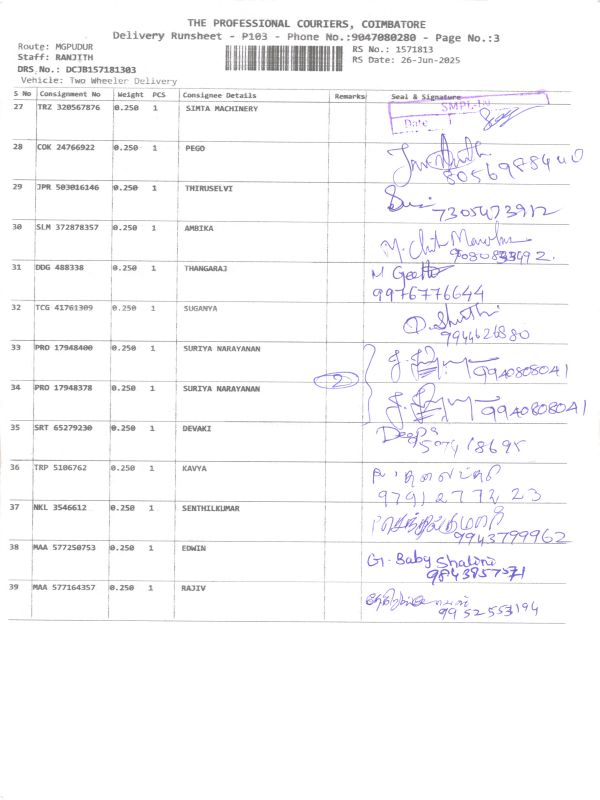 THE PROFESSIONAL COURIERS, COIMBATORE
Delivery Runsheet - P103 - Phone No.:9047080280 - Page No.:3
Route: MGPUDUR
RS No.: 1571813
Staff: RANJITH
RS Date: 26-Jun-2025
DRS No.: DCJB157181303
Vehicle: Two Wheeler Delivery
S No Consignment No Weight PCS Consignee Details Remarks Seal & Signature
27 TRZ 320567876 0.250 1 SIMTA MACHINERY
Date
28 COK 24766922 0.250 1 PEGO
8056978440
29 JPR 503016146 0.250 1 THIRUSELVI
7305473912
30 SLM 372878357 0.250 1 AMBIKA
31 DDG 488338 0.250 1 THANGARAJ
9976776644
32 TCG 41761309 0.250 1 SUGANYA
33 PRO 17948400 0.250 1 SURIYA NARAYANAN
9940808041
2
34 PRO 17948378 0.250 1 SURIYA NARAYANAN
9940808041
35 SRT 65279230 0.250 1 DEVAKI
Deepa
36 TRP 5106762 0.250 1 KAVYA
37 NKL 3546612 0.250 1 SENTHILKUMAR
செந்தில்குமார்
9943799962
38 MAA 577250753 0.250 1 EDWIN
G. Baby Shalini
39 MAA 577164357 0.250 1 RAJIV
9952553194